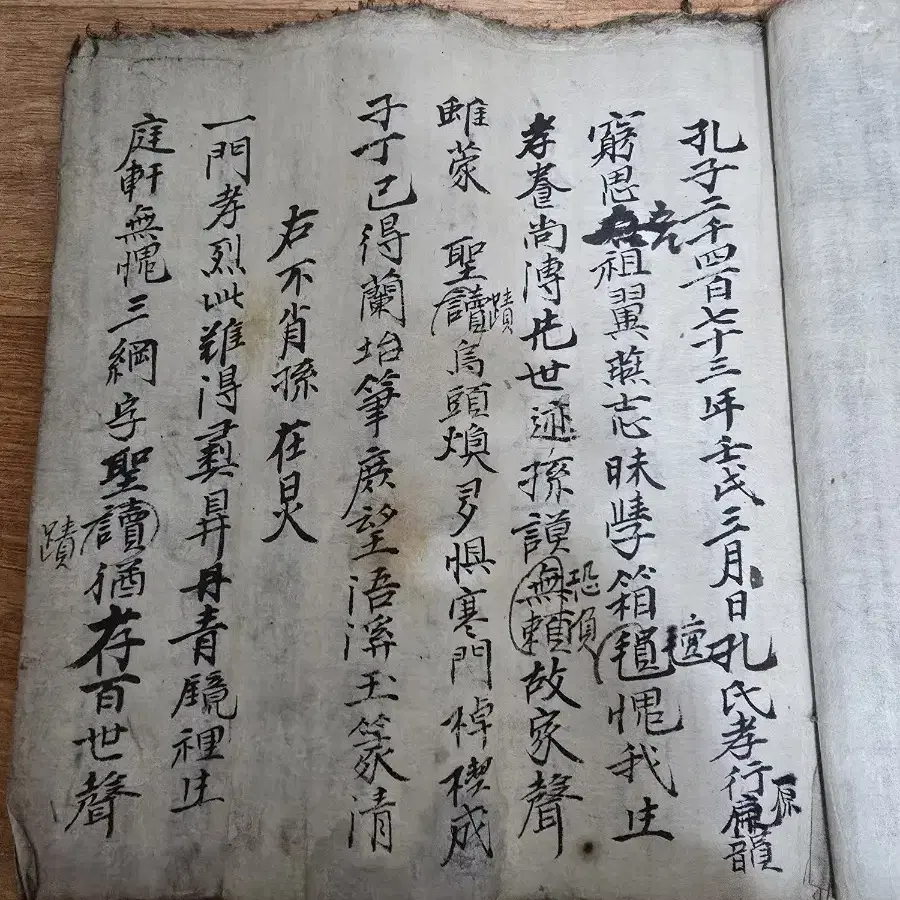 孔子二千四百七十三年壬戌三月日孔氏孝行原韻
窮思先祖翼燕志昧學箱氊愧我生
孝養尚傳先世迹孫謨恐負故家聲
雖蒙 聖蹟烏頭煥多惧寒門棹楔成
子丁已得蘭坮筆庶望浯溪玉篆清
右不肖孫在炅
一門孝烈此難得彛昪丹青鏡裡生
庭軒無愧三綱字聖讀猶存百世聲
蹟